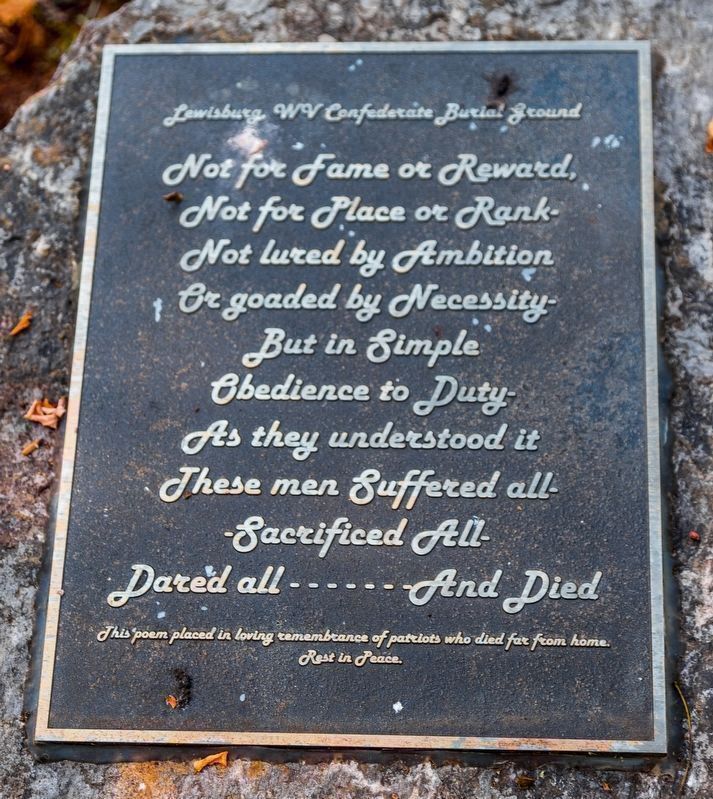 Lewisburg, WV Confederate Burial Ground
Not for Fame or Reward,
Not for Place or Rank-
Not lured by Ambition
Or goaded by Necessity-
But in Simple
Obedience to Duty-
As they understood it
These men Suffered all-
-Sacrificed All-
Dared all - - - - - - -And Died
This poem placed in loving remembrance of patriots who died far from home.
Rest in Peace.